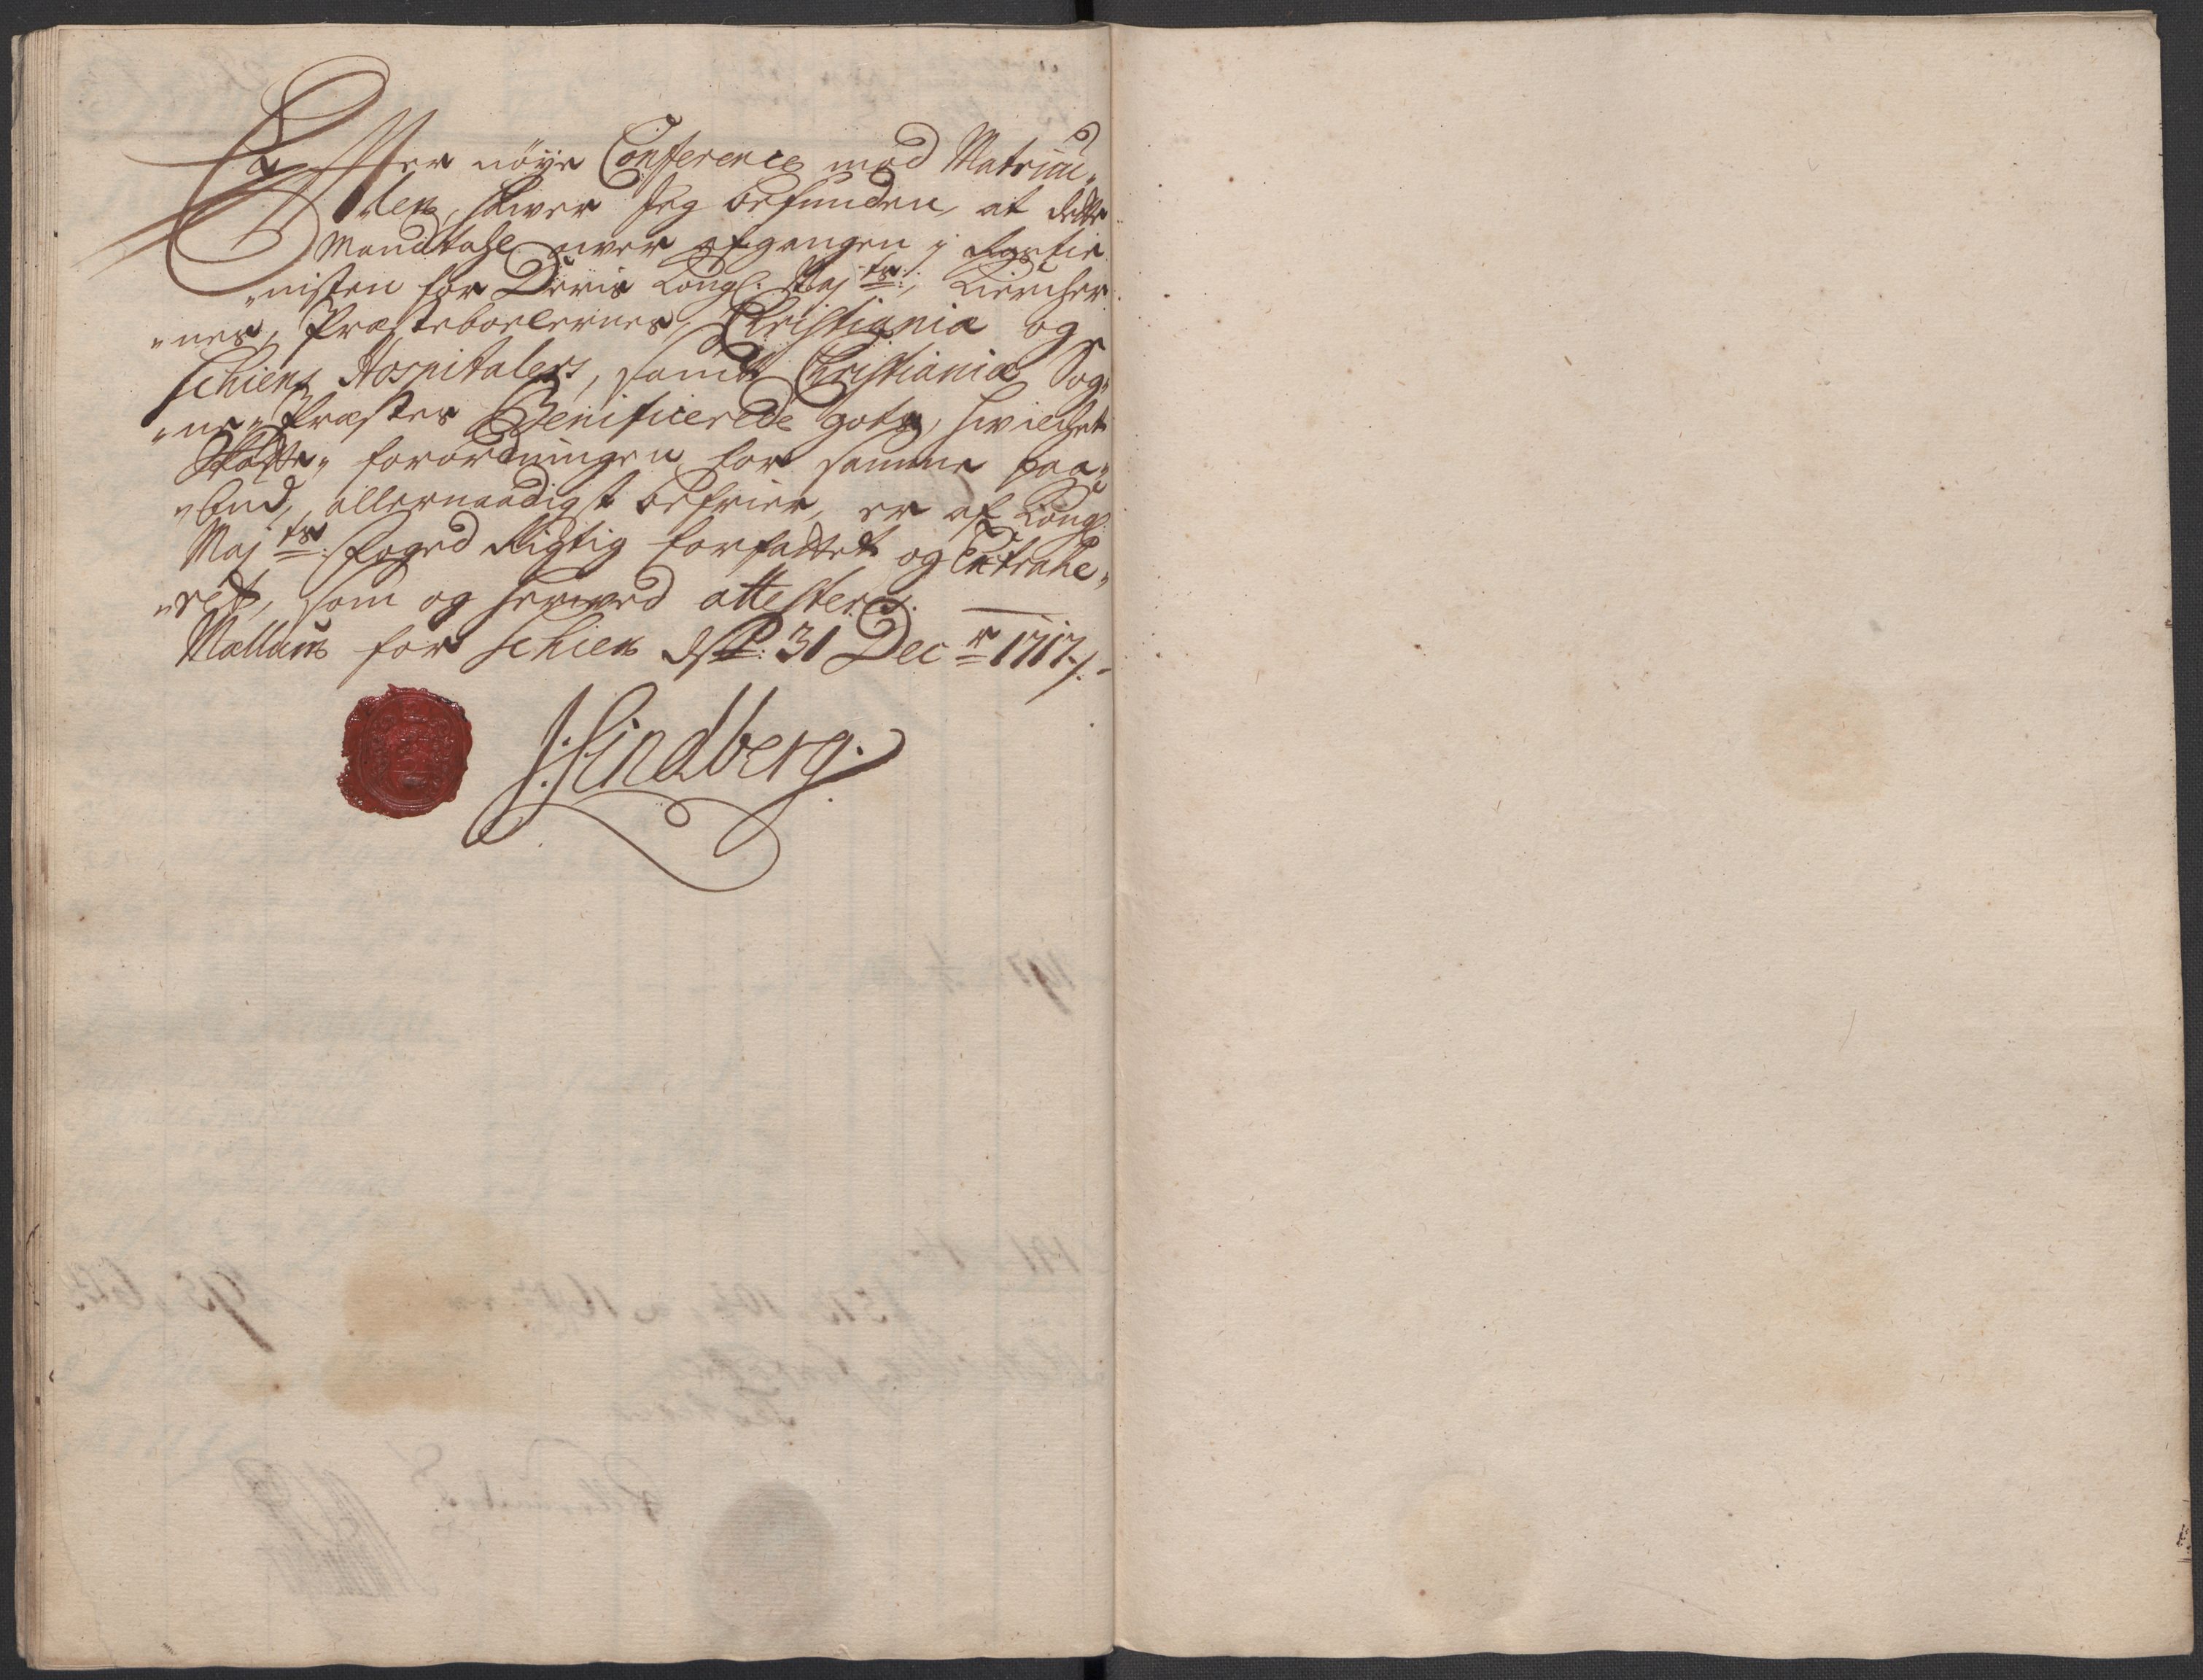 Efter nöye Conference mod Matricu„
len, hawer Jeg befunden, at dette
Mandtahl over afgangen j Rostie„
„nisten for Deris Kongl: Maj:ts:, Kircher„
„nes, Præsteboelernes, Christiania og
Schiens Hospitalers, samt Christiania Sog„
„ne„Præstes Benificerede gotz, hvilchet
Skatte„ forordningen for samme paa„
„bud, allernaadigst befrier, er af Kongl:
Maj:ts: Foged Rigtig forfattet og Extrahe„
„ret, som og herved attesteris.
Mællum for Schien d: 31 Dec:r 1717./.
J: Lindberg.